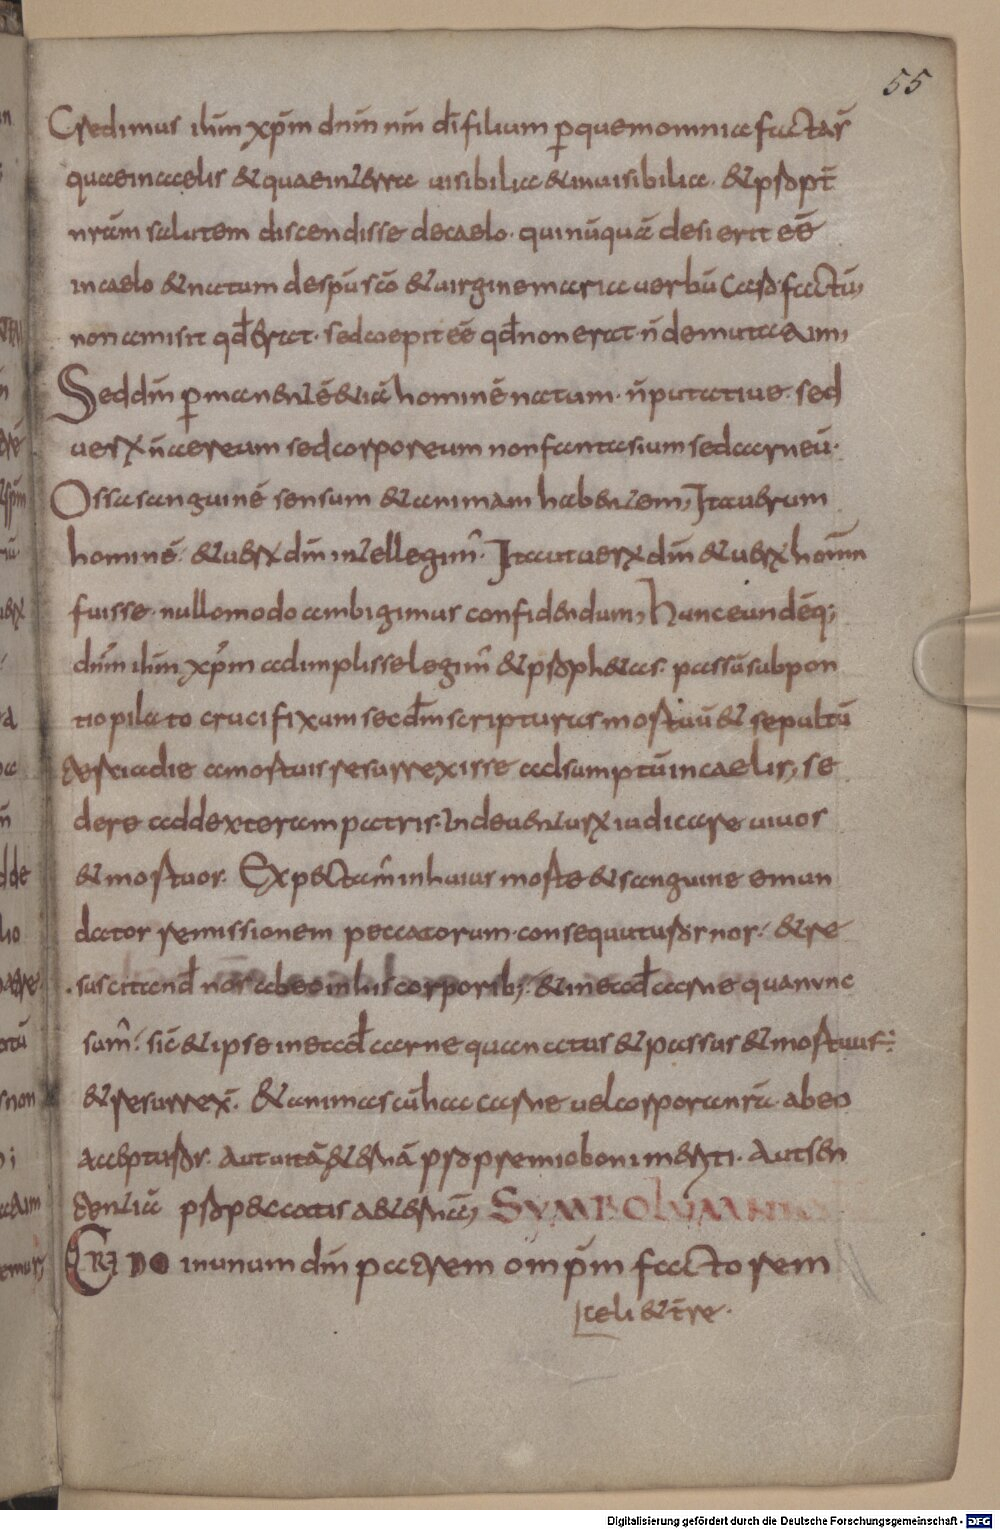 55
Credimus ihm xpm dnm nm di filium p quem omnia facta s̄
quae in caelis & quae in terra uisibilia & inuisibilia · & propt̄
nrām salutem discendisse de caelo · qui nūquā desierit eē
in caelo & natum de spū scō & uirgine maria uerbū caro factū,
non amisit qd̄ erat · sed coepit eē qd̄ non erat · n̄ demutatum,
Sed dm̄ permanentē &iā hominē natum · n̄ putatiue · sed
uere n̄ aereum sed corporeum non fantasium sed carneū ·
Ossa sanguinē sensum & animam habentem, Ita uerum
hominē · & uerum dm̄ intellegim̄ · Ita ut uerum dm̄ & uerum homin̄
fuisse · nullo modo ambigimus confidendum, Hunc eundēq;
dn̄m ihm̄ xp̄m adimplisse legim̄ & proph&as · passū sub pon
tio pilato crucifixum secdm̄ scripturas mortuū & sepultū
tertia die a mortuis resurrexisse adsumptū in caelis, se
dere ad dexteram patris · Inde uenturum iudicare uiuos
& mortuos · Expectam̄ in huius morte & sanguine emun
datos remissionem peccatorum · consequuturos nos · & re
suscitand nos ab eo in his corporib; · & in eadē carne qua nunc
sum̄ · sic & ipse in eadē carne qua natus & passus & mortuus
& resurrex̄ · & animas cū hac carne uel corpora nrā · ab eo
accepturos · Aut uitā &ernā pro premio boni meriti · Aut sen
tentiā pro peccatis a&ernā, Symbolum
Credo in unum dm̄ patrem omp̄m factorem
celi & tr̄e ·
Digitalisierung gefördert durch die Deutsche Forschungsgemeinschaft - DFG